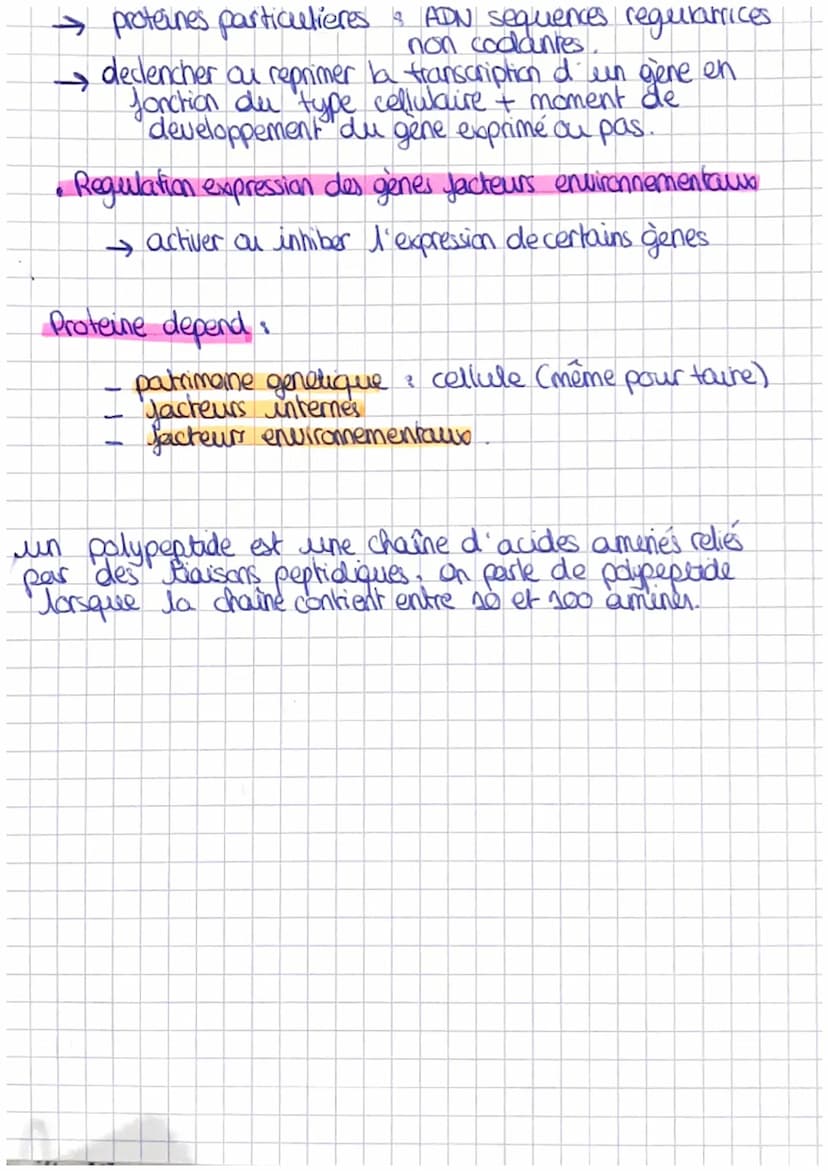 → proteines particulieres : ADN sequences regulatrices
non codantes.
→ declencher ou reprimer la transcription d'un gène en
fonction du type cellulaire + moment de
developpement du gène exprimé ou pas.
• Regulation expression des gènes facteurs environnementaux
→ activer ou inhiber l'expression de certains gènes
Proteine depend :
- patrimoine genetique : cellule (même pour toute)
- facteurs internes
- facteurs environnementaux.
un polypeptide est une chaîne d'acides aminés reliés
par des liaisons peptidiques. On parle de polypeptide
lorsque la chaîne contient entre 10 et 100 aminés.